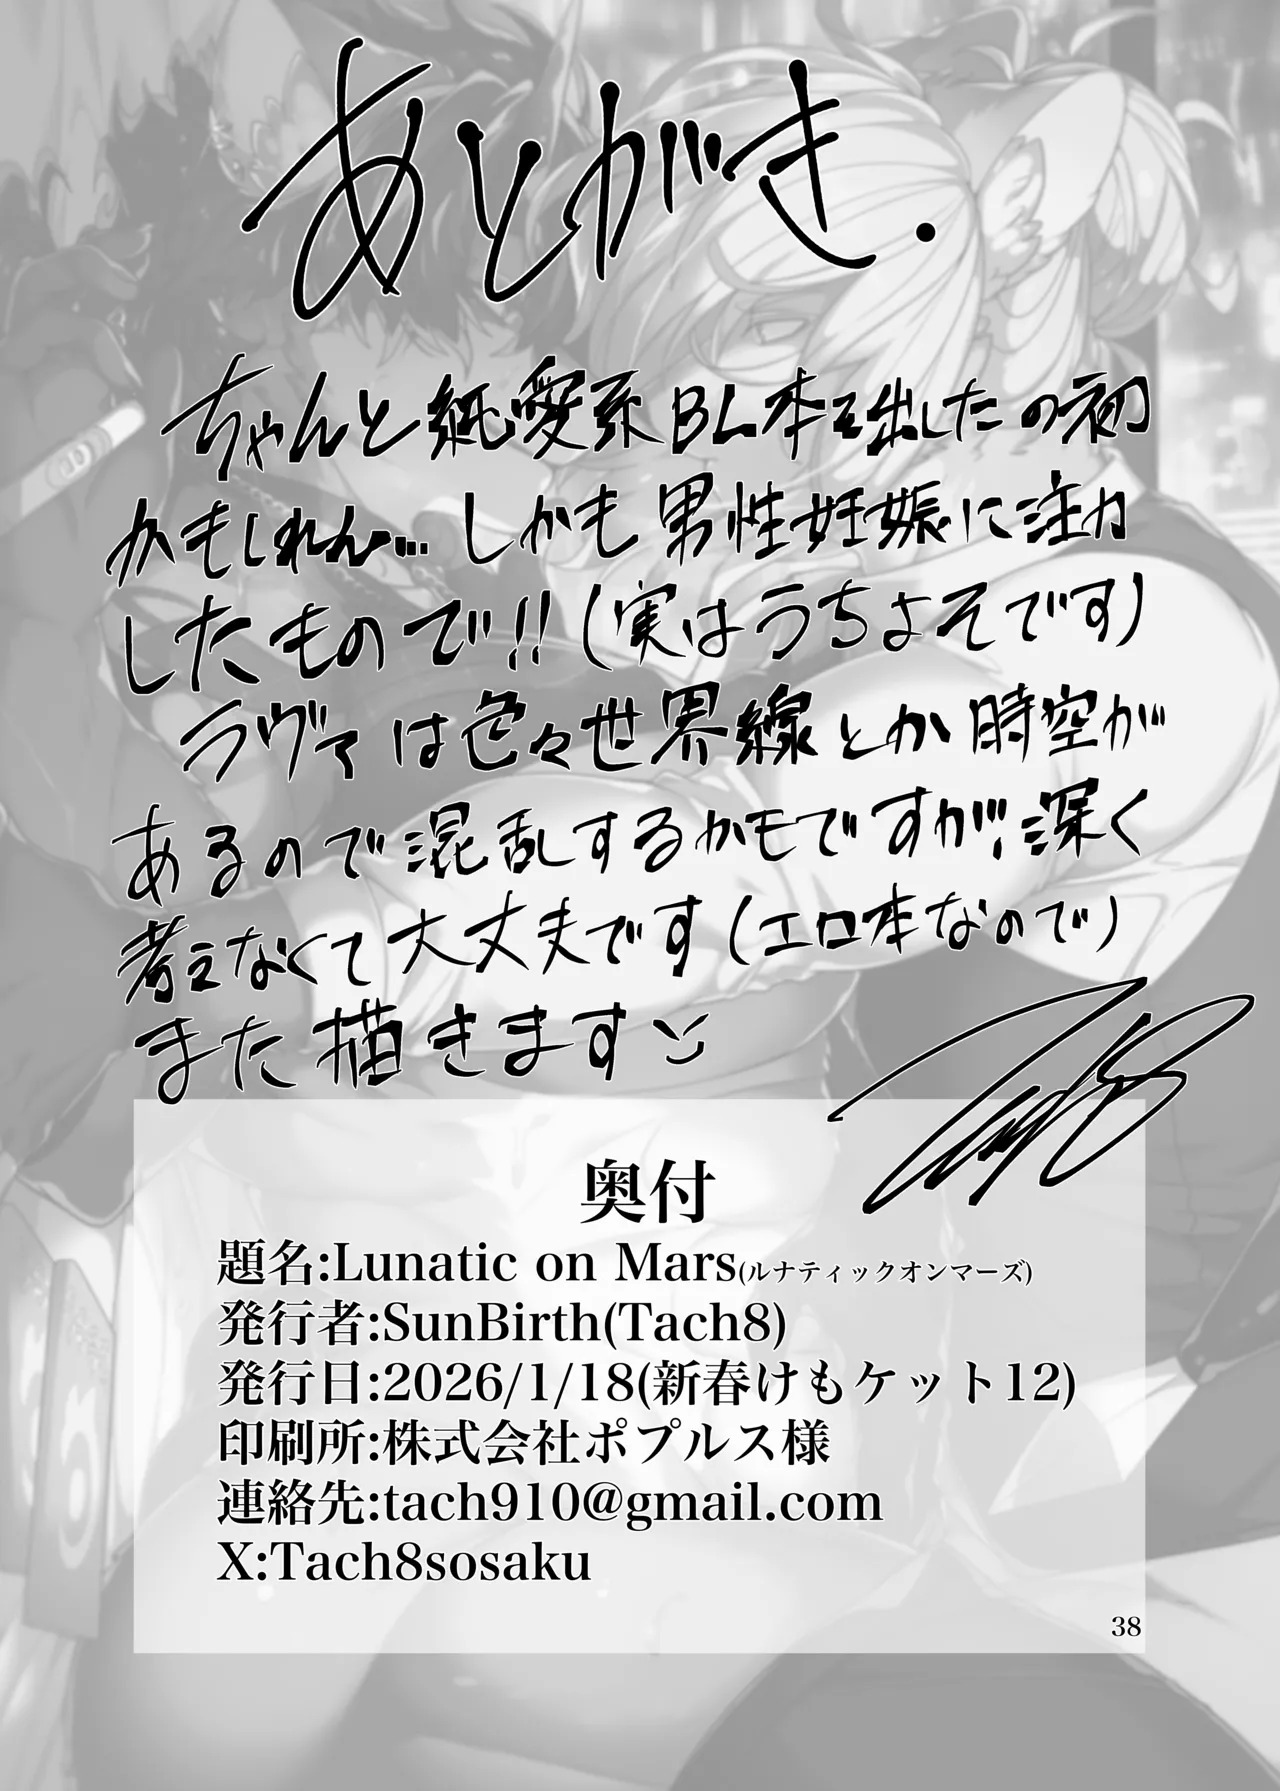 あとがき.
ちゃんと純愛系BL本を出したの初
かもしれん… しかも男性妊娠に注力
したもので!!(実はうちよそです)
ラヴァは色々世界線とか時空が
あるので混乱するかモですが、深く
考えなくて大丈夫です(エロ本なので)
また描きます
Tach8
奥付
題名:Lunatic on Mars(ルナティックオンマーズ)
発行者:SunBirth(Tach8)
発行日:2026/1/18(新春けもケット12)
印刷所:株式会社ポプルス様
連絡先:tach910@gmail.com
X:Tach8sosaku
38